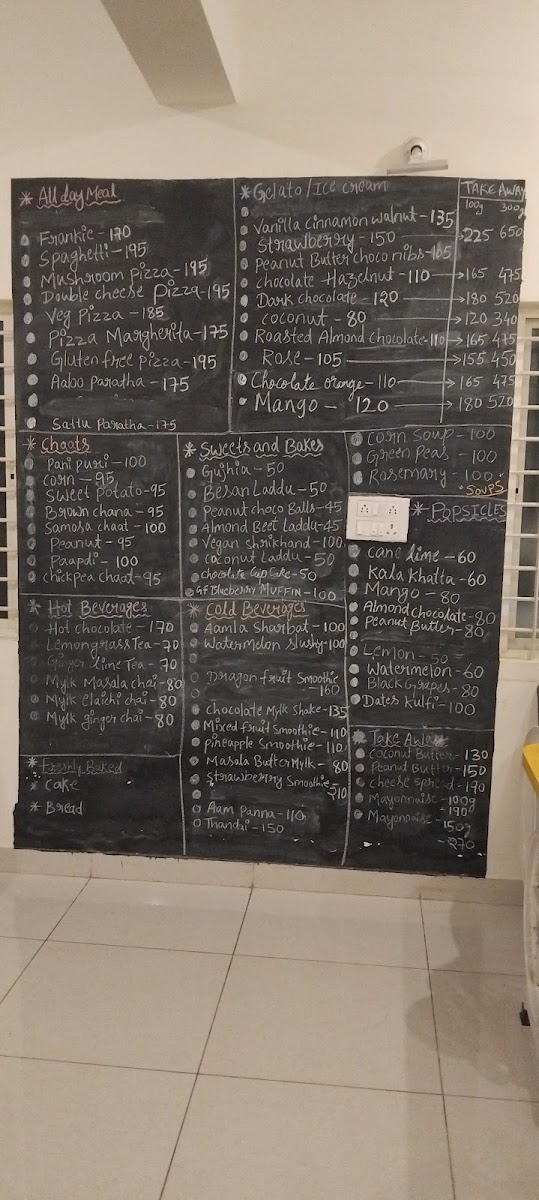 * All day Meal
Frankie - 170
Spaghetti - 195
Mushroom pizza - 195
Double cheese pizza - 195
Veg Pizza - 185
Pizza Margherita - 175
Gluten free pizza - 195
Aaloo paratha - 175
Sattu Paratha - 175
* Gelato / Ice cream
TAKE AWAY
100g 300g
Vanilla cinnamon walnut - 135
Strawberry - 150 → 225 650
Peanut Butter choco nibs - 165
chocolate Hazelnut - 110 → 165 475
Dark chocolate - 120 → 180 520
coconut - 80 → 120 340
Roasted Almond chocolate - 110 → 165 475
Rose - 105 → 155 450
Chocolate orange - 110 → 165 475
Mango - 120 → 180 520
* Chaats
Pani puri - 100
corn - 95
Sweet potato - 95
Brown chana - 95
Samosa chaat - 100
Peanut - 95
Paapdi - 100
chickpea chaat - 95
* Sweets and Bakes
Gujhia - 50
Besan Laddu - 50
Peanut choco Balls - 45
Almond Beet Laddu - 45
Vegan shrikhand - 100
coconut Laddu - 50
chocolate Cup Cake - 50
GF Blueberry MUFFIN - 100
Corn Soup - 100
Green Peas - 100
Rosemary - 100
"SOUPS"
* POPSICLES
cane lime - 60
Kala Khatta - 60
Mango - 80
Almond chocolate - 80
Peanut Butter - 80
Lemon - 50
Watermelon - 60
Black Grapes - 80
Dates Kulfi - 100
* Hot Beverages
Hot chocolate - 170
Lemongrass Tea - 70
Ginger lime Tea - 70
Mylk Masala chai - 80
Mylk elaichi chai - 80
Mylk ginger chai - 80
* Cold Beverages
Aamla Sharbat - 100
Watermelon slushy - 100
Dragon fruit Smoothie
- 160
Chocolate Mylk Shake - 135
Mixed fruit Smoothie - 110
Pineapple Smoothie - 110
Masala ButterMylk - 80
Strawberry Smoothie
- 210
Aam Panna - 110
Thandai - 150
* Freshly Baked
* Cake
* Bread
* Take Away
Coconut Butter - 130
Peanut Butter - 150
cheese spread - 190
Mayonnaise - 100g
- 190
Mayonnaise - 150g
- 270